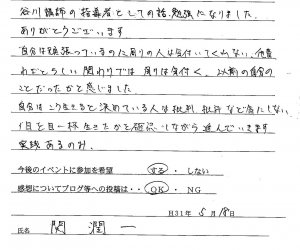 谷川講師の指導者としての話、勉強になりました。
ありがとうございます
自分は頑張っているのに周りの人は気付いてくれない、他責
わたしらしい関わりでは 周りは気付く、以前の自分の
ことだったかと感じました
自分はこう生きると決めている人は批判、批評など気にしない
1日を目一杯生きたかを確認しながら進んでいきます
実践あるのみ。
今後のイベントに参加を希望 する ・ しない
感想についてブログ等への投稿は‥ OK ・ NG
H31年 5月 18日
氏名 関 潤一